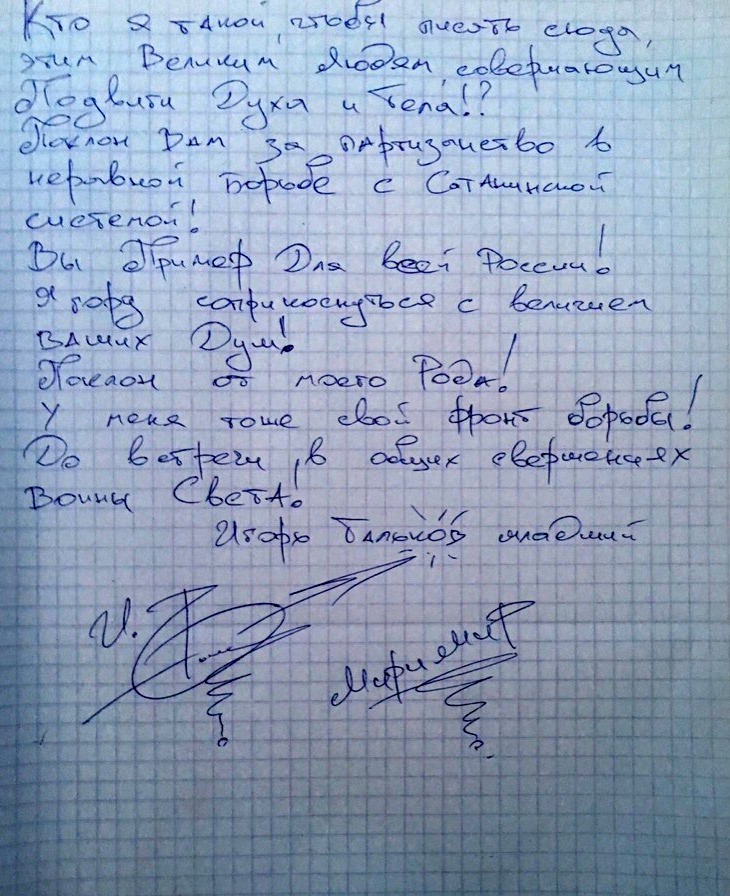 Кто я такой, чтобы писать сюда,
этим Великим Людям, совершающим
Подвиги Духа и Тела!?
Поклон Вам за партизанство в
неравной Борьбе с Сатанинской
системой!
Вы Пример Для всей России!
Я горд соприкоснуться с величием
ВАШИХ Дум!
Поклон от моего Рода!
У меня тоже свой фронт борьбы!
До встречи, в общих свершениях
Воины СветА!
Игорь Тальков младший
И.